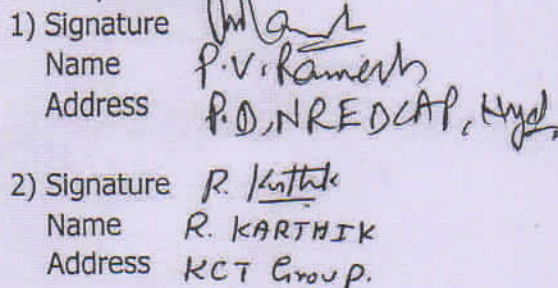 1) Signature
Name P.V. Ramesh
Address P.D, NREDCAP, Hyd.
2) Signature R. Karthik
Name R. KARTHIK
Address KCT Group.